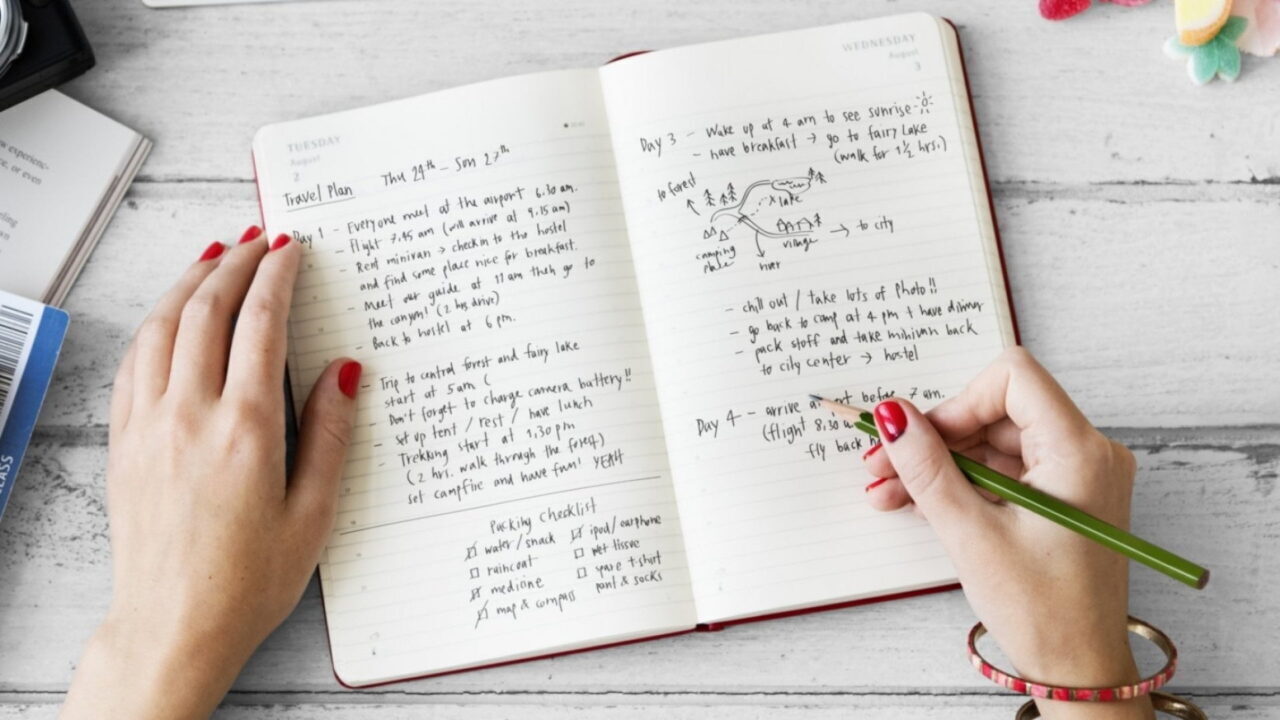 w experienc-
ce, or even
ting
s.
CLASS
TUESDAY
August
2
Travel Plan Thu 24th - Sun 27th
Day 1 - Everyone meet at the airport 6.10 am.
- Flight 7.45 am (will arrive at 9.15 am)
- Rent minivan → checkin to the hostel
and find some place nice for breakfast.
- Meet our guide at 11 am then go to
the canyon! (2 hrs drive)
- Back to hostel at 6 pm.
- Trip to central forest and fairy lake
start at 5 am (
Don't forget to charge camera battery!!
- Set up tent / rest / have lunch
- Trekking start at 1.30 pm
(2 hrs. walk through the forest)
set campfire and have fun! YEAH
Packing Checklist
water/snack
raincoat
medicine
map & compass
ipod/earphone
wet tissue
spare t-shirt
pant & socks
WEDNESDAY
August
3
Day 3 - Wake up at 4 am to see sunrise
- have breakfast → go to fairy lake
(walk for 1½ hrs.)
to forest
lake
camping
river
village
→ to city
- chill out / take lots of photo!!
- go back to camp at 4 pm + have dinner
- pack stuff and take minivan back
to city center → hostel
Day 4 - arrive before 7 am.
(flight 8.30
fly back